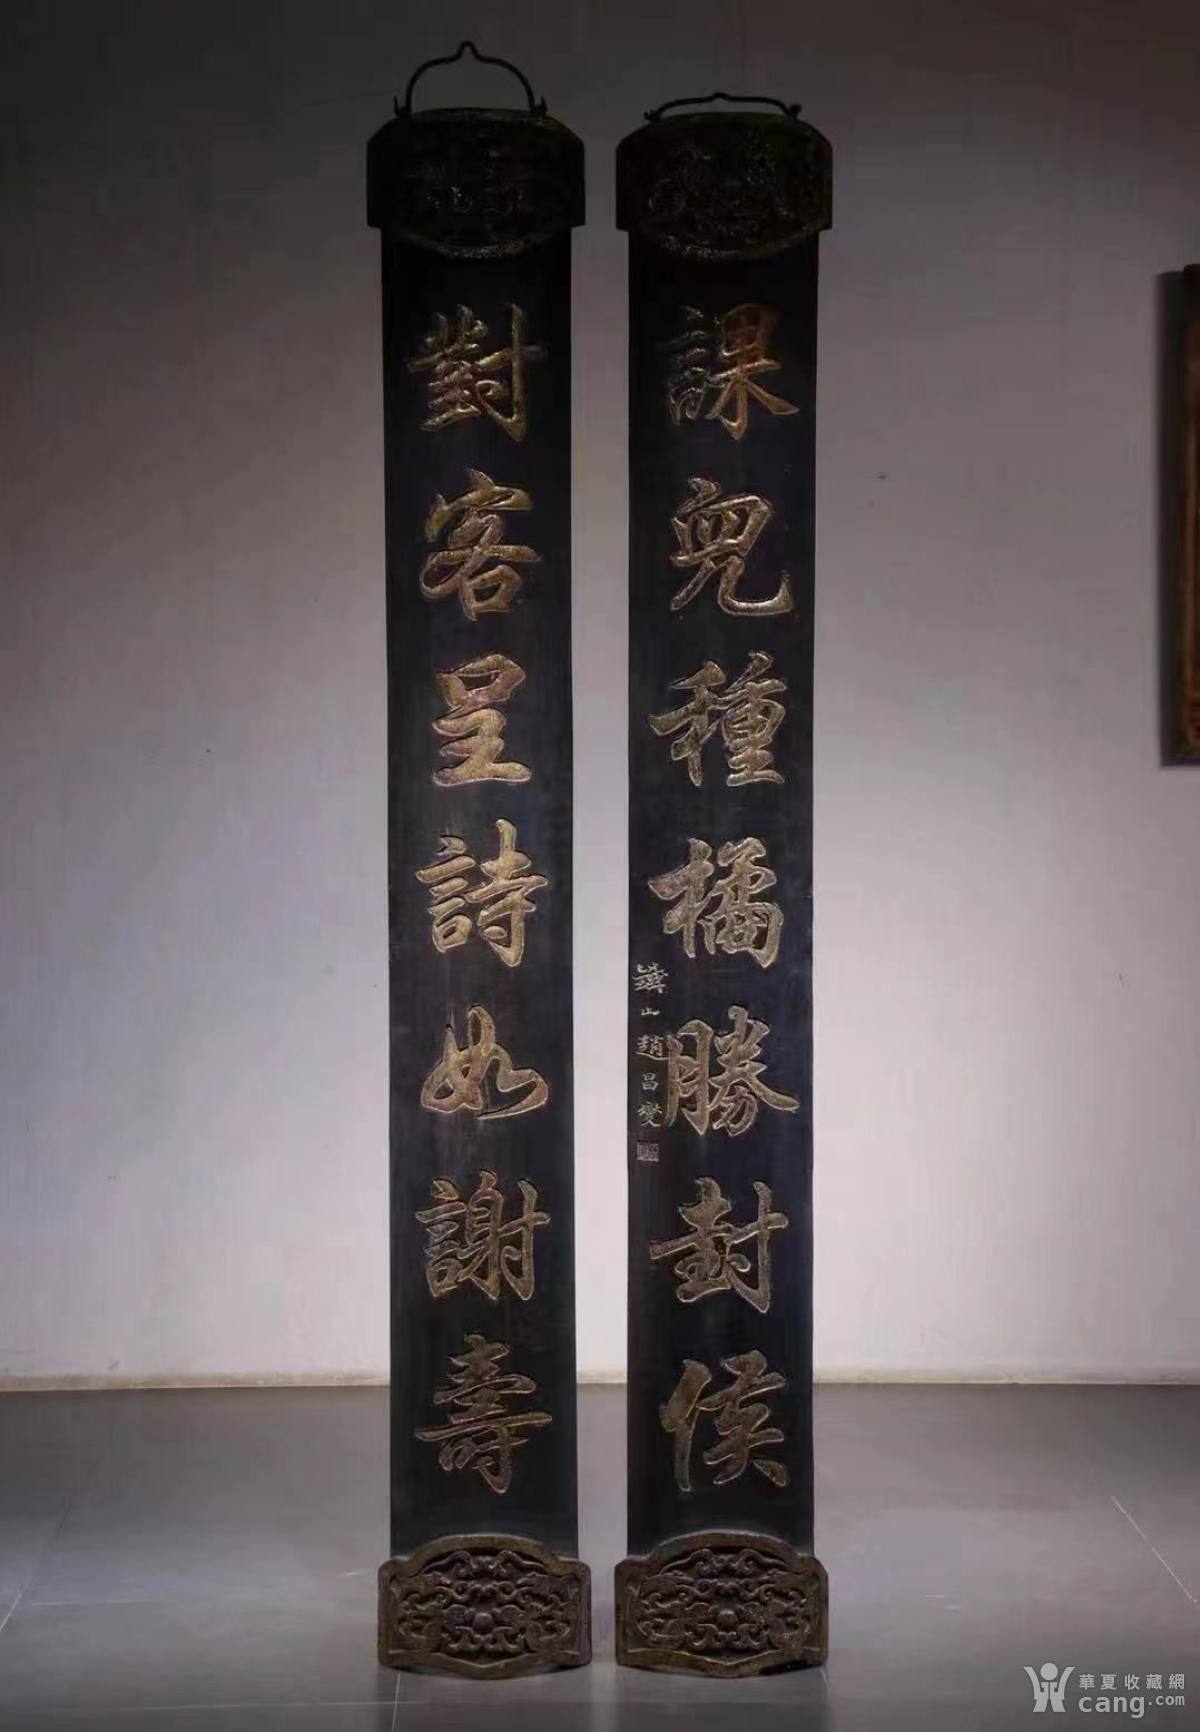 對客呈詩如謝壽
課兒種橘勝封侯
鐵山趙昌燮
華夏收藏網
cang.com